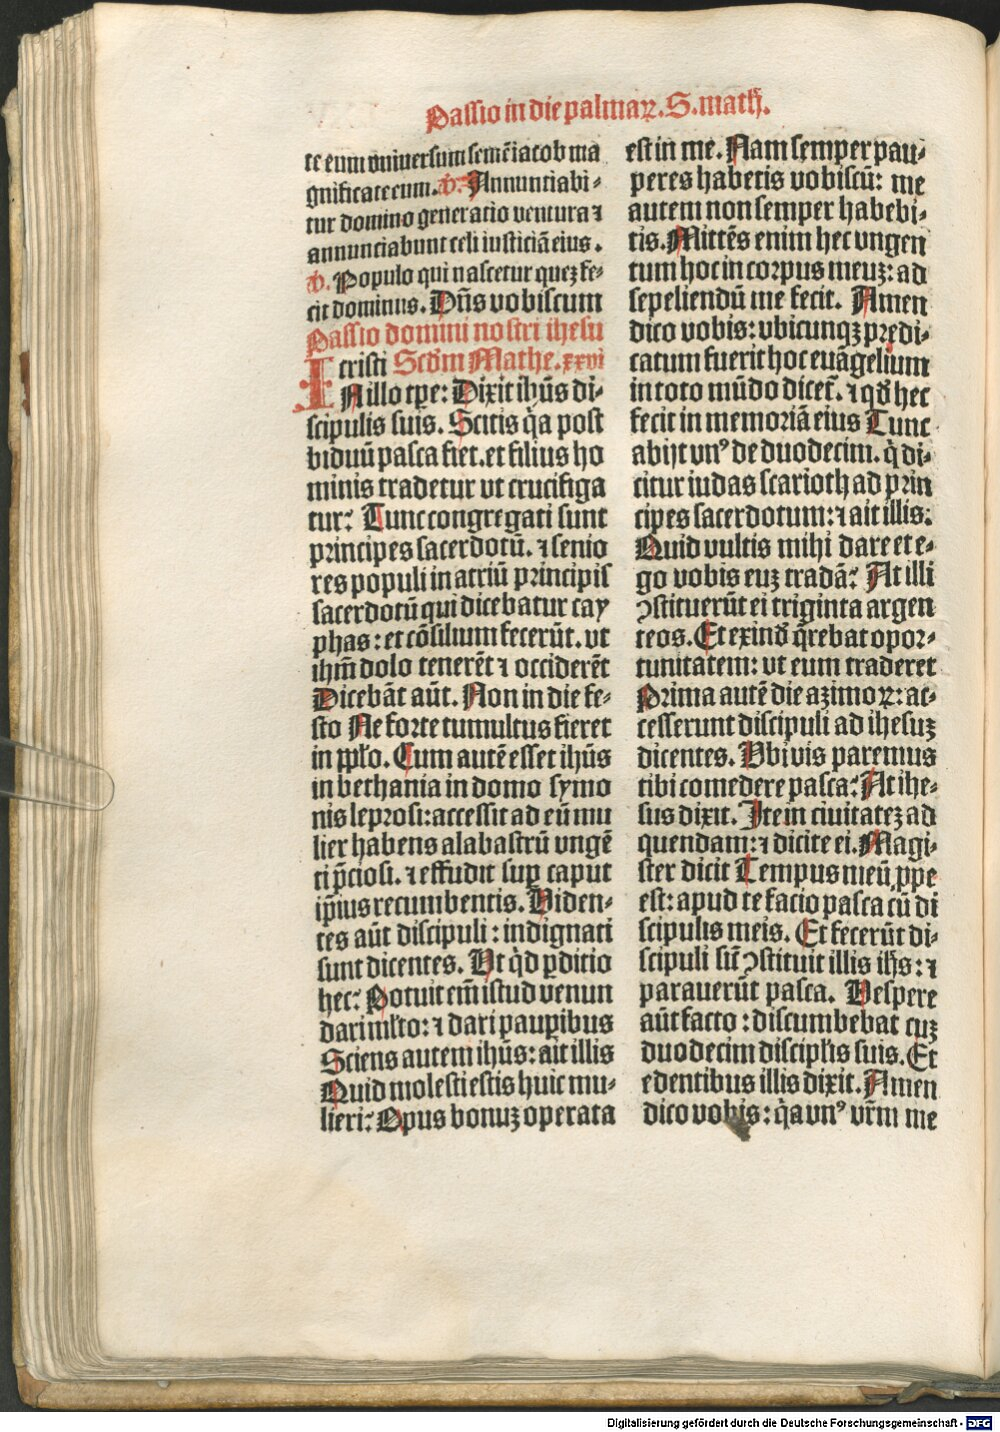 Passio in die palmaꝝ. S. math̄.
te eum vniuersum semē iacob ma
gnificate eum. ℣. Annuntiabi⸗
tur domino generatio ventura ⁊
annunciabunt celi iusticiā eius.
℣. Populo qui nascetur quez fe⸗
cit dominus. Dn̄s vobiscum
Passio domini nostri ihesu
cristi Scd̄m Mathe. xxvi
IN illo tꝑe: Dixit ihūs di⸗
scipulis suis. Scitis q̄a post
biduū pasca fiet. et filius ho
minis tradetur vt crucifiga
tur? Tunc congregati sunt
principes sacerdotū. ⁊ senio
res populi in atriū principis
sacerdotū qui dicebatur cay
phas: et cōsilium fecerūt. vt
ihm̄ dolo tenerēt ⁊ occiderēt
Dicebāt aūt. Non in die fe⸗
sto Ne forte tumultus fieret
in pp̄lo. Cum autē esset ihūs
in bethania in domo symo
nis leprosi: accessit ad eū mu
lier habens alabastrū vngē
ti p̄ciosi. ⁊ effudit suꝑ caput
ip̄ius recumbentis. Viden⸗
tes aūt discipuli: indignati
sunt dicentes. Vt q̄d ꝑditio
hec? Potuit em̄ istud venun
dari ml̄to: ⁊ dari pauꝑibus
Sciens autem ihūs: ait illis
Quid molesti estis huic mu⸗
lieri? Opus bonuz operata
est in me. Nam semper pau⸗
peres habetis vobiscū: me
autem non semper habebi⸗
tis. Mittēs enim hec vngen
tum hoc in corpus meuz: ad
sepeliendū me fecit. Amen
dico vobis: vbicunqꝫ predi⸗
catum fuerit hoc euāgelium
in toto mūdo dicet̄. ⁊ qd̄ hec
fecit in memoriā eius Tunc
abijt vnꝰ de duodecim. q̄ di⸗
citur iudas scarioth ad prin
cipes sacerdotum: ⁊ ait illis:
Quid vultis mihi dare et e⸗
go vobis euz tradā? At illi
ꝯstituerūt ei triginta argen
teos. Et exind̄ q̄rebat opor⸗
tunitatem: vt eum traderet
Prima autē die azimoꝝ: ac⸗
cesserunt discipuli ad ihesuz
dicentes. Vbi vis paremus
tibi comedere pasca? At ihe⸗
sus dixit. Ite in ciuitatez ad
quendam: ⁊ dicite ei. Magi⸗
ster dicit Tempus meū ꝓpe
est: apud te facio pasca cū di
scipulis meis. Et fecerūt di⸗
scipuli sic̄ ꝯstituit illis ih̄s: ⁊
parauerūt pasca. Vespere
aūt facto: discumbebat cuz
duodecim discipl̄is suis. Et
edentibus illis dixit. Amen
dico vobis: q̄a vnꝰ vr̄m me
Digitalisierung gefördert durch die Deutsche Forschungsgemeinschaft - DFG